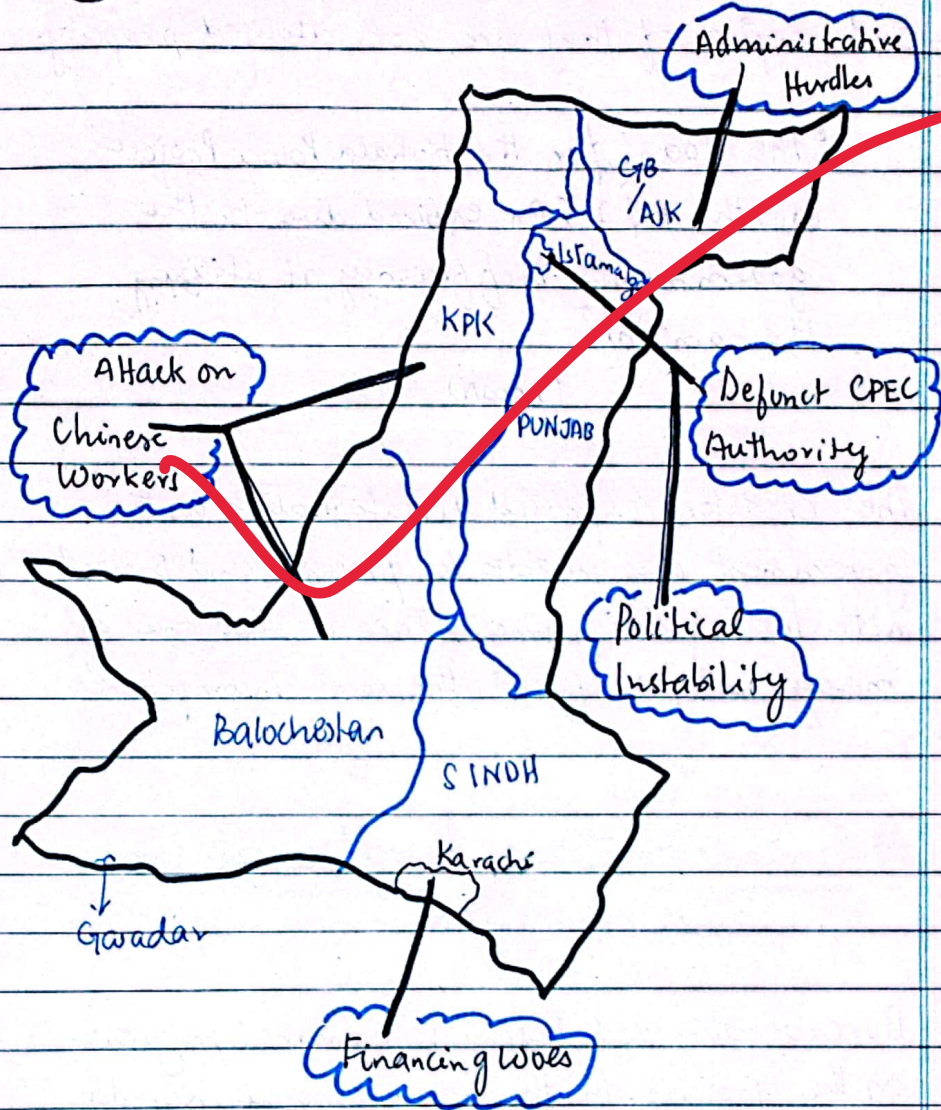 Administrative
Hurdles
GB
/AJK
Islamabad
KPK
Attack on
Chinese
Workers
Defunct CPEC
Authority
PUNJAB
Political
Instability
Balochestan
SINDH
Karachi
Gwadar
Financing Woes